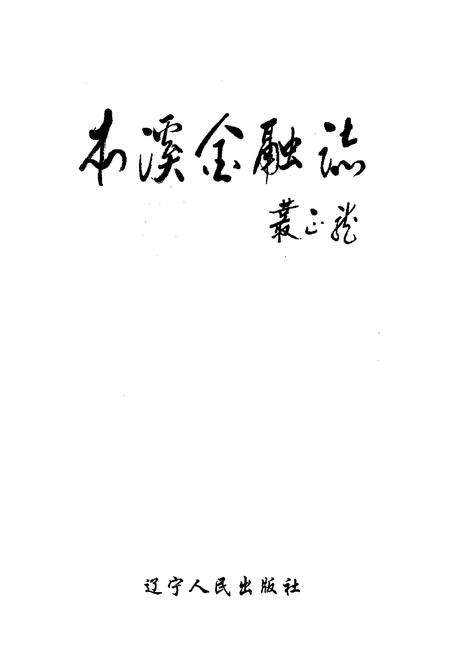 本溪金融誌
叢正龍
辽宁人民出版社